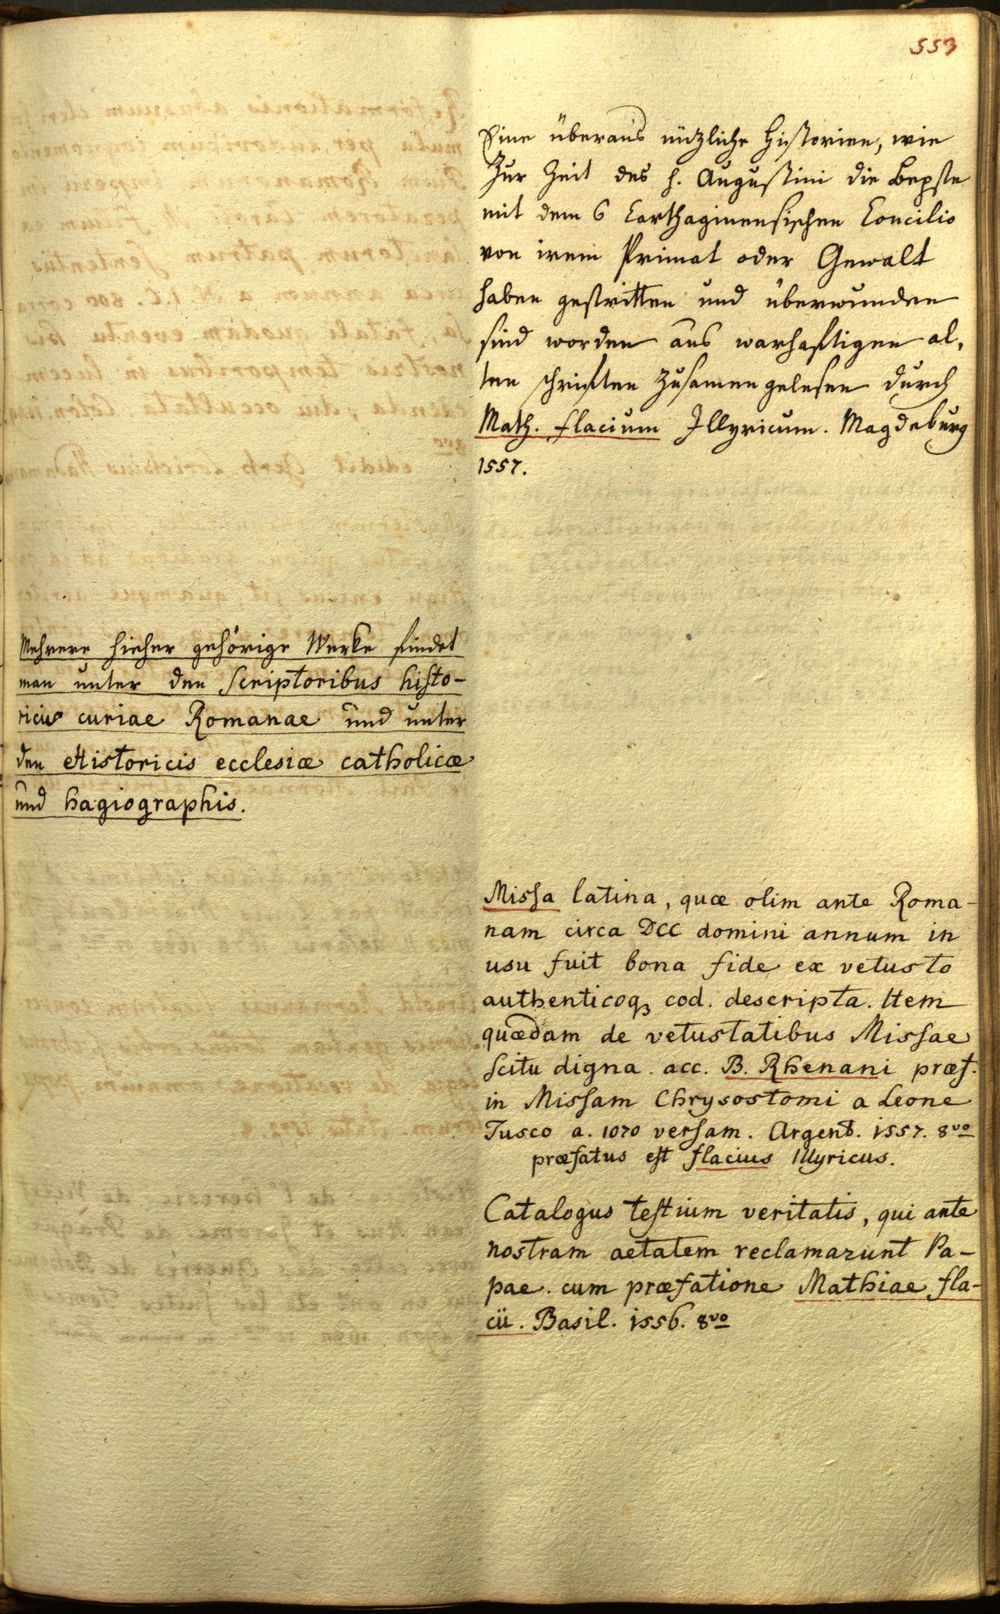 553
Eine überaus nützliche Historien, wie
Zur Zeit des h. Augustini die Bepste
mit dem 6 Carthaginensischen Concilio
von irem Primat oder Gewalt
haben gestritten und überwunden
sind worden aus warhafftigen al,
ten schrifften zusamen gelesen durch
Math. Flacium Illyricum. Magdeburg
1557.
Mehrere hieher gehörige Werke findet
man unter den Scriptoribus histo-
ricis curiae Romanae und unter
den Historicis ecclesiæ catholicæ
und hagiographis.
Missa latina, quæ olim ante Roma-
nam circa DCC domini annum in
usu fuit bona fide ex vetusto
authenticoq; cod. descripta. Item
quædam de vetustatibus Missae
scitu digna. acc. B. Rhenani præf.
in Missam Chrysostomi a Leone
Tusco a. 1070 versam. Argent. 1557. 8vo
præfatus est flacius Illyricus.
Catalogus testium veritatis, qui ante
nostram aetatem reclamarunt Pa-
pae. cum præfatione Mathiae Fla-
cii. Basil. 1556. 8vo